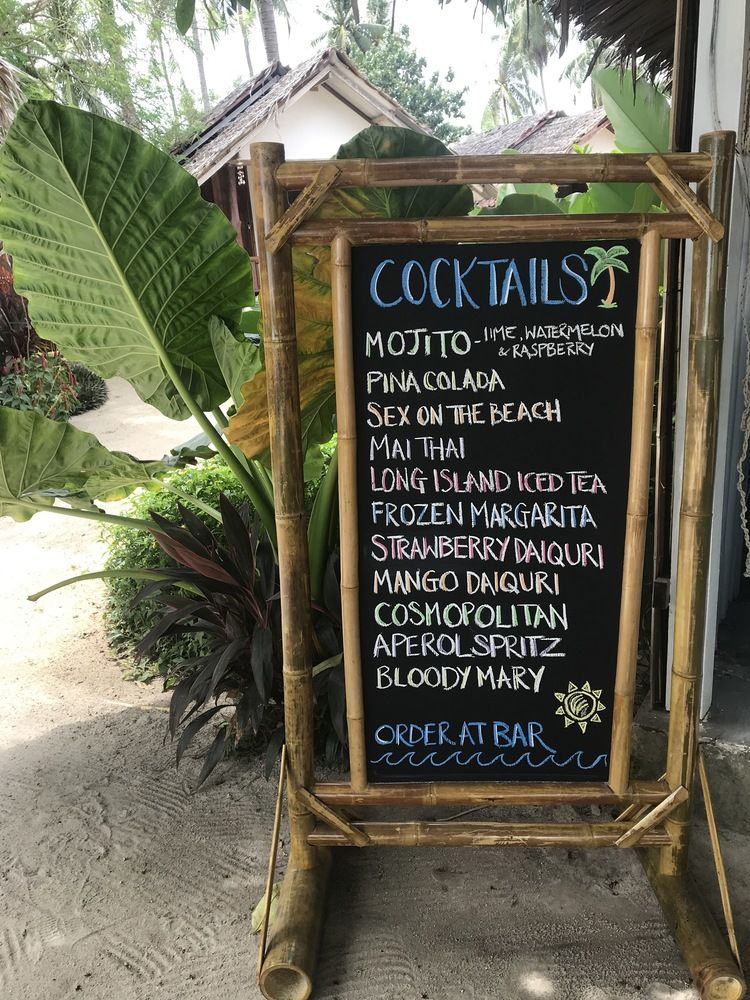 COCKTAILS
MOJITO - LIME, WATERMELON
& RASPBERRY
PINA COLADA
SEX ON THE BEACH
MAI THAI
LONG ISLAND ICED TEA
FROZEN MARGARITA
STRAWBERRY DAIQURI
MANGO DAIQURI
COSMOPOLITAN
APEROL SPRITZ
BLOODY MARY
ORDER AT BAR